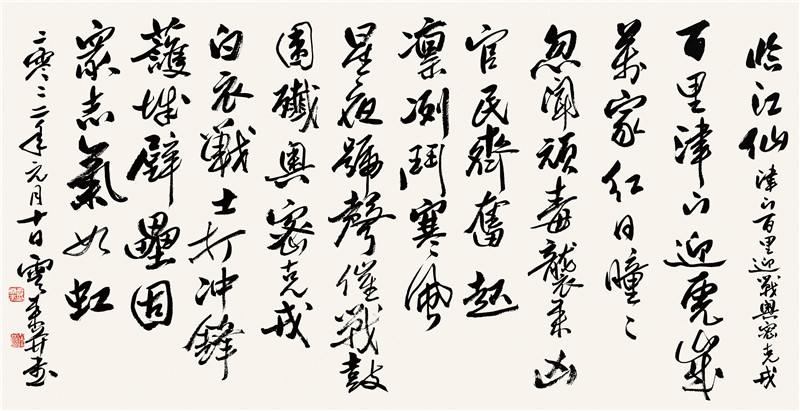 临江仙 津门百里迎戰奥密克戎
百里津门迎虎歲
萬家红日曈々
忽聞頑毒襲来凶
官民齊奮起
凛冽鬥寒風
星夜號聲催戰鼓
圍殲奥密克戎
白衣戰士打冲鋒
護城壁壘固
衆志氣如虹
二零二二年元月十日雲来并書